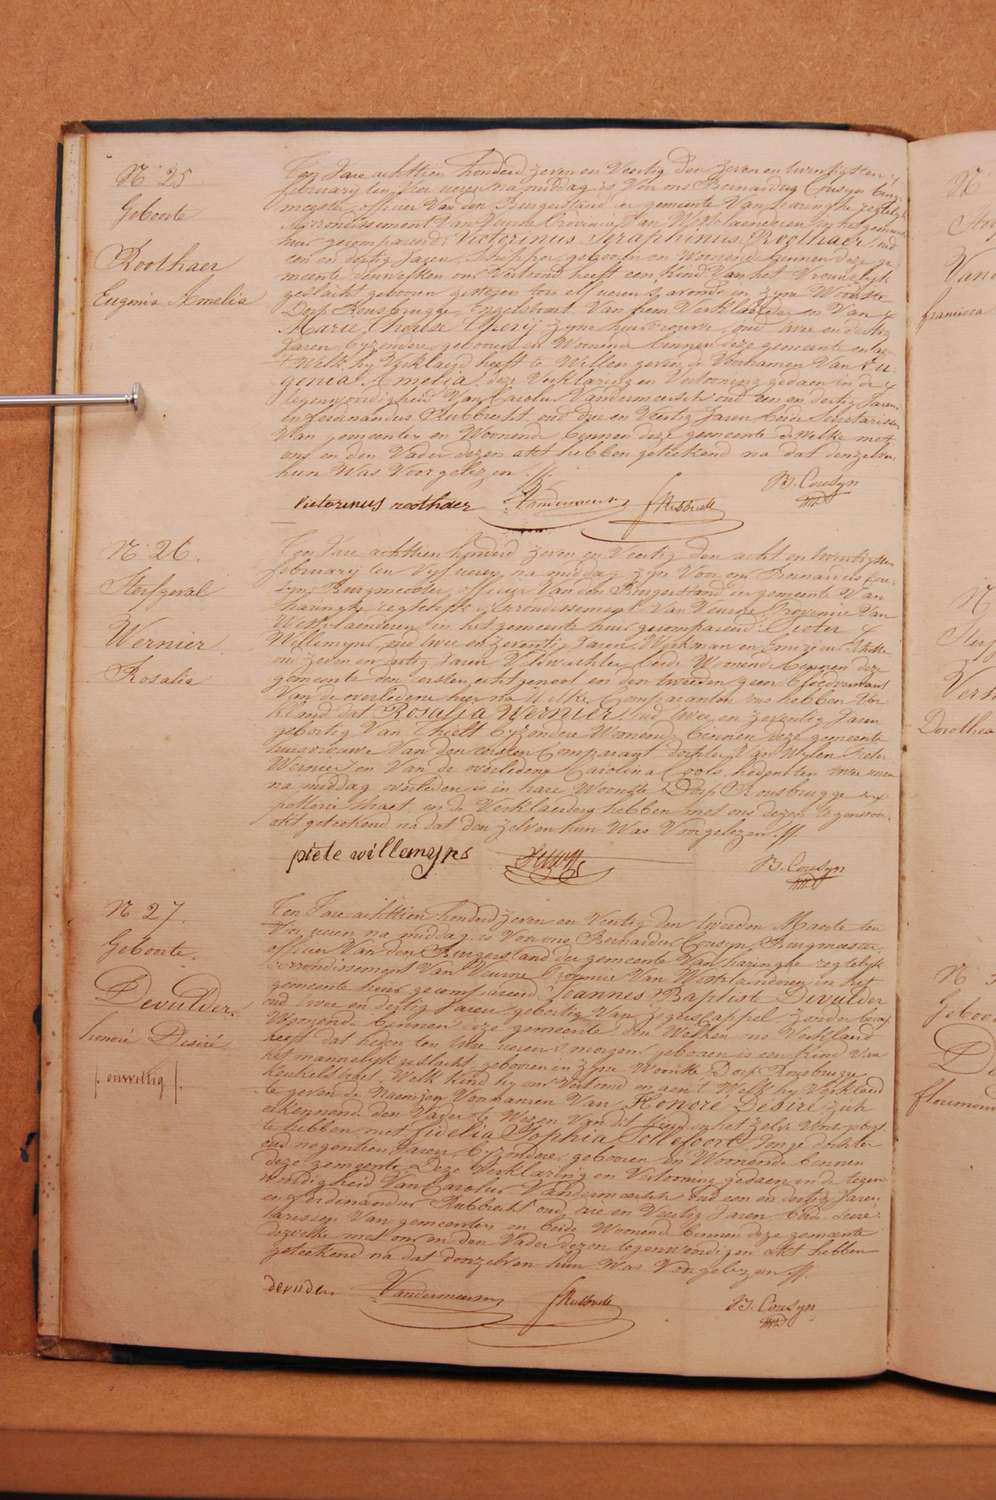 N 25
Geboorte
Roothaer
Eugenia Amelia
Ten Jare achttien honderd zeven en Veertig den zeven en twintigsten
february ten vier uren na middag is Voor ons Bernardus Cousyn burg
meester officier Van den Burgerstand der gemeente Van haringhe regtelijk
arrondissement Van Veurne Provincie Van Westvlaenderen in het gemeente
huis gecompareerd Victorinus Seraphinus Roothaer oud
een en dertig Jaren geboren en Woonende binnen deze ge
meente denwelken ons Vertoond heeft een kind Van het Vrouwelijk
geslacht geboren gisteren ten elf uren s'avonds in zyne Woonste
Dorp Rousbrugge Van hem Verklaerder en Van
Marie zyne huisvrouwe oud twee en dertig
Jaren byzondere geboren en Woonende binnen deze gemeente en
Welk hy Verklaerd heeft te Willen geven de Voornamen Van Eu
genia Amelia deze Verklaring en Vertooning gedaen in de
tegenwoordigheid Van Carolus Vandermeersch oud een en dertig Jaren
en ferdinandus Hubbrecht oud drie en Veertig Jaren beide Secretarissen
Van gemeenten en Woonende binnen deze gemeente dewelke met
ons en den Vader dezen akt hebben geteekend na dat denzelven
hun Was Voorgelezen
B. Cousyn
victorinus roothaer Vandermeersch f Hubbrecht
N 26.
Sterfgeval
Wernier
Rosalia
Ten Jare achttien honderd zeven en Veertig den acht en twintigsten
february ten Vyf uren na middag zyn Voor ons Bernardus Cou
syn Burgmeester officier Van den Burgerstand der gemeente Van
haringhe regtelijk arrondissement Van Veurne Provincie Van
Westvlaenderen in het gemeente huis gecompareerd Pieter
Willemyns oud twee en zeventig Jaren Werkman en
oud zeven en Jaren Veldwachter beide Woonende binnen deze
gemeente den eersten echtgenoot en den tweeden geen bloedverwant
Van de overledene hier na Welke Comparanten ons hebben Ver
klaerd dat Rosalia Wernier oud twee en zeventig Jaren
geboortig Van Thielt byzondere Woonende binnen deze gemeente
huisvrouwe Van den eersten Comparant dochter Van Wylen Pieter
Wernier en Van de overledene Carolina Cools, heden ten twee uren
na middag overleden is in hare Woonste Dorp Rousbrugge
potterie straet en de Verklaerders hebben met ons dezen tegenwoor.
akt geteekend na dat den zelven hun Was Voorgelezen
piete willemyns B. Cousyn
N 27.
Geboorte.
Devulder.
honoré Désiré
onwettig
Ten Jare achttien honderd zeven en Veertig den tweeden Maerte ten
Vier uren na middag is Voor ons Bernardus Cousyn Burgmeester
officier Van den Burgerstand der gemeente Van haringhe regtelijk
arrondissement Van Veurne Provincie Van Westvlaenderen in het
gemeente huis gecompareerd Joannes Baptiste Devulder
oud twee en dertig Jaren geboortig Van zegerscappel zonder beroep
Woonende binnen deze gemeente den Welken ons Verklaerd
heeft dat heden ten twee uren s'morgens geboren is een kind Van
het mannelijk geslacht geboren in zyne Woonste Dorp Rousbrugge
Welk kind hy ons Vertoond en aen't Welk hy Verklaerd
te geven de Voornamen Van Honore Desire zich
erkennende den Vader te Wezen Van dit kind en het zelve Voort gebragt
te hebben met fidelia Sophia Jonge dochter
oud negentien Jaren byzondere geboren en Woonende binnen
deze gemeente. Deze Verklaring en Vertooning gedaen in de tegen
woordigheid Van Carolus Vandermeersch oud een en dertig Jaren
en ferdinandus Hubbrecht oud drie en Veertig Jaren beide Secre
tarissen Van gemeenten en beide Woonend binnen deze gemeente
dezelke met ons en den Vader dezen tegenwoordigen akt hebben
geteekend na dat denzelven hun Was Voorgelezen
devulder Vandermeersch f Hubbrecht B. Cousyn
N
Geboor
De
Dorothea
francisca